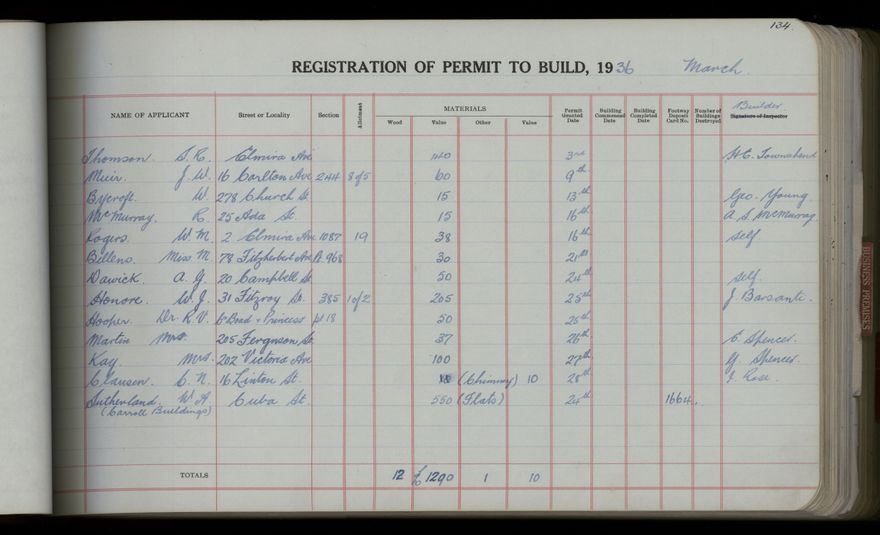 134.
REGISTRATION OF PERMIT TO BUILD, 1936 March.
NAME OF APPLICANT Street or Locality Section Allotment MATERIALS Wood Value Other Value Permit Granted Date Building Commenced Date Building Completed Date Footway Deposit Card No. Number of Buildings Destroyed Builder. Signature of Inspector
Thomson. S. R. Elmira Ave 3rd H. E. Townshend
Muir. J. W. 16 Carlton Ave 244 8 of 5 60 9th
Bycroft. W. 278 Church St. 15 13th Geo. Young
McMurray, R. 25 Ada St. 15 16th A. S. McMurray.
Rogers. W. M. 2 Elmira Ave 1087 19 38 16th Self.
Billens. Miss M. 78 Fitzherbert Ave 968 30 21st
Dawick. A. G. 20 Campbell St 50 24th Self.
Honore. W. J. 31 Fitzroy St. 385 1 of 2 205 25th J. Barsanti.
Hooper. Dr. R. V. Broad & Princess 418 50 25th
Martin Mrs. 205 Ferguson St. 37 26th C. Spencer.
Kay. Mrs. 202 Victoria Ave 100 27th G. Spencer.
Clausen. C. N. 16 Linton St. (Chimney) 10 28th J. Rose.
Sutherland. W. A. Cuba St. 550 (Flats) 24th 1664.
(Carroll Buildings)
TOTALS 12 £1290 1 10
BUSINESS PREMISES